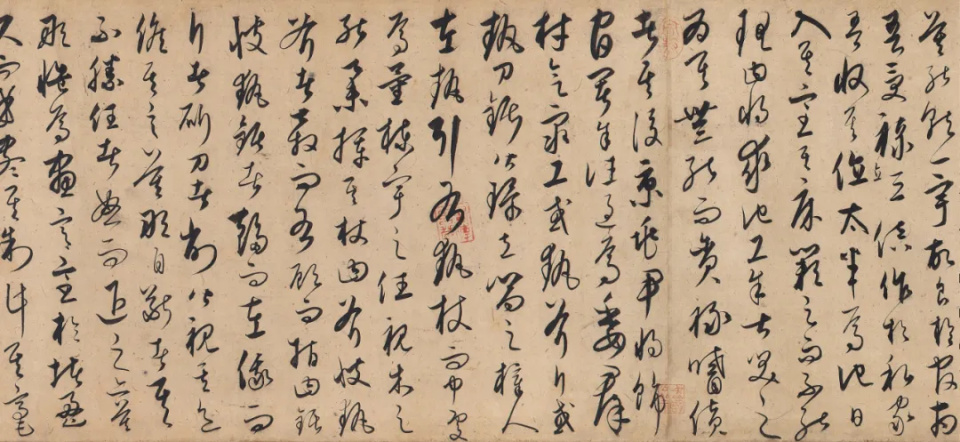 莫能就一宇故食於官府
吾受祿三倍作於私家
吾收其值太半焉他日
入其室其床闕足而不能
理曰將求他工余甚笑之
謂其無能而貪祿嗜貨
者其後京兆尹將飾
官署余往過焉委群
材會衆工或執斧斤或
執刀鋸皆環立嚮之梓人
左執引右執杖而中處
焉量棟宇之任視木之
能舉揮其杖曰斧彼執
斧者奔而右顧而指曰鋸
彼執鋸者趨而左俄而
斤者斫刀者削皆視其色
俟其言莫敢自斷者其
不勝任者怒而退之亦莫
敢慍焉畫宮於堵盈
尺而曲盡其制計其毫